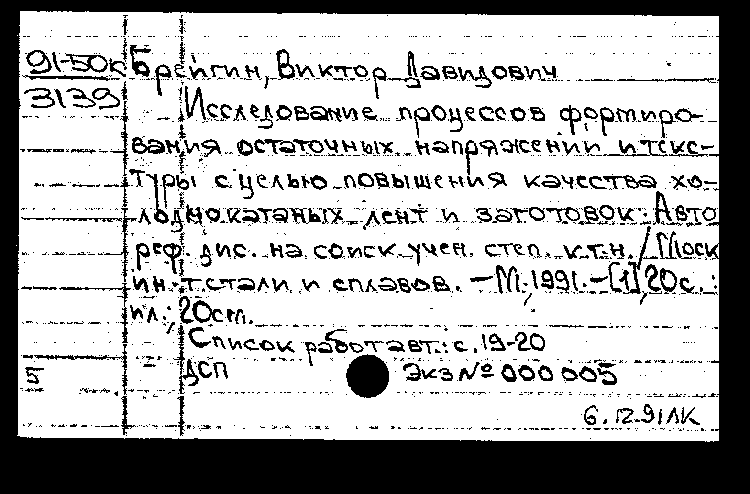 91-50к Брейгин, Виктор Давидович
3139 Исследование процессов формиро-
вания остаточных напряжений и текс-
туры с целью повышения качества хо-
лоднокатаных лент и заготовок: Авто
реф. дис. на соиск учен. степ. к.т.н. / Моск
ин-т стали и сплавов. – М., 1991. – [1], 20с. :
ил.; 20см.
Список работ авт.: с. 19-20
5 ДСП Экз № 000 005
6.12.91 ЛК